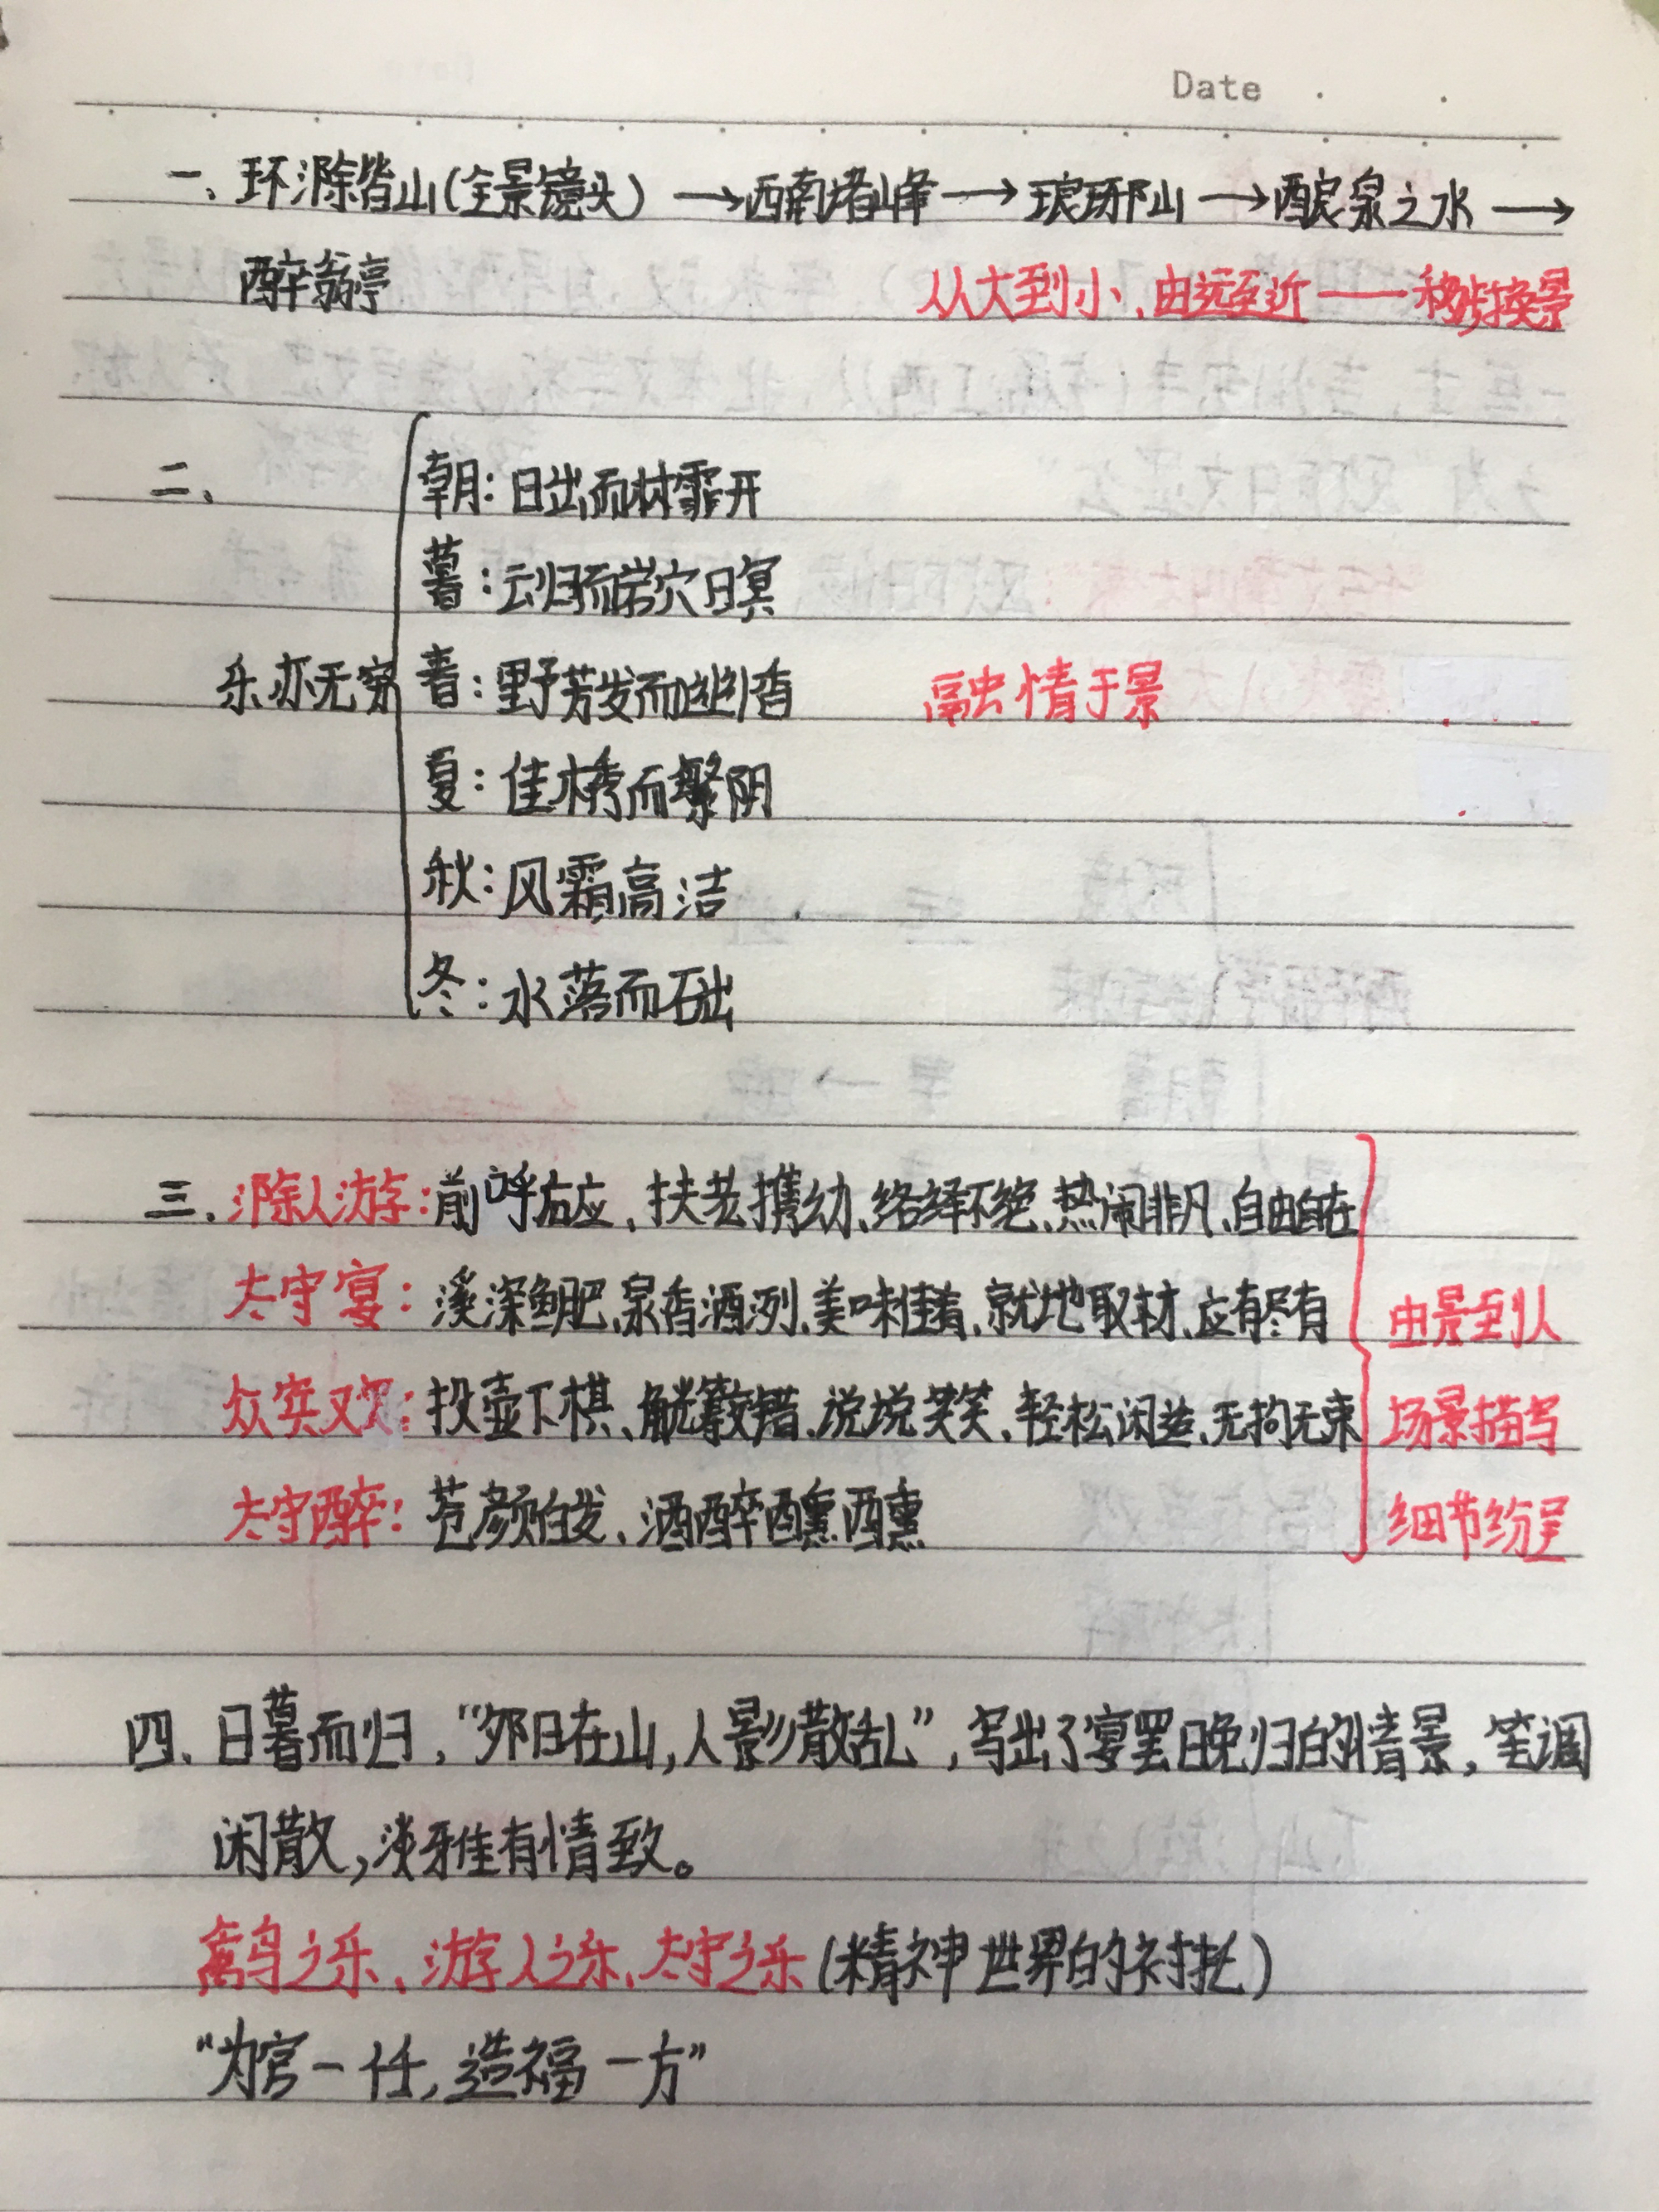 Date . .
一、环滁皆山(全景镜头)→西南诸峰→琅琊山→酿泉之水→
醉翁亭 从大到小、由远至近——移步换景
二、
朝:日出而林霏开
暮:云归而岩穴暝
乐亦无穷 春:野芳发而幽香 融情于景
夏:佳木秀而繁阴
秋:风霜高洁
冬:水落而石出
三.滁人游:前呼右应、扶老携幼、络绎不绝、热闹非凡、自由自在
太守宴:溪深鱼肥、泉香酒洌、美味佳肴、就地取材、应有尽有 由景到人
众宾欢:投壶下棋、觥筹交错、说说笑笑、轻松闲适、无拘无束 场景描写
太守醉:苍颜白发、酒醉醺醺 细节纷呈
四、日暮而归,“夕阳在山,人影散乱”,写出了宴罢晚归的情景,笔调
闲散,淡雅有情致。
禽鸟之乐、游人之乐、太守之乐(精神世界的衬托)
“为官一任,造福一方”